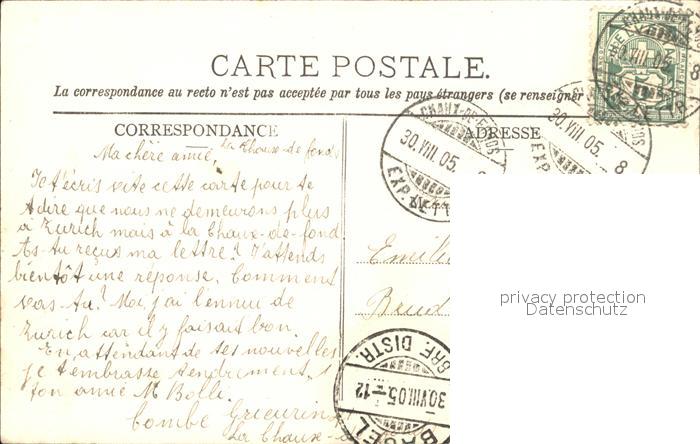 CARTE POSTALE.
La correspondance au recto n'est pas acceptée par tous les pays étrangers (se renseigner
CORRESPONDANCE
ADRESSE
Ma chère amie,
La Chaux-de-fonds
Je t'écris vite cette carte pour te
dire que nous ne demeurons plus
à Zurich mais à la Chaux-de-fond
As-tu reçus ma lettre? J'attends
bientôt une réponse. Comment
vas-tu? Moi, j'ai l'ennui de
Zurich car il y faisait bon.
En attendant de tes nouvelles
je t'embrasse tendrement,
ton amie M Bolli.
Combe
La Chaux-d
Emili
CHAUX-DE-FONDS
30.VIII.05.
EXP. LETT
CHAUX-DE-FONDS
30.VIII.05. 8
HELVETIA
BASEL
BRF. DISTR.
30.VIII.05.-12
privacy protection
Datenschutz